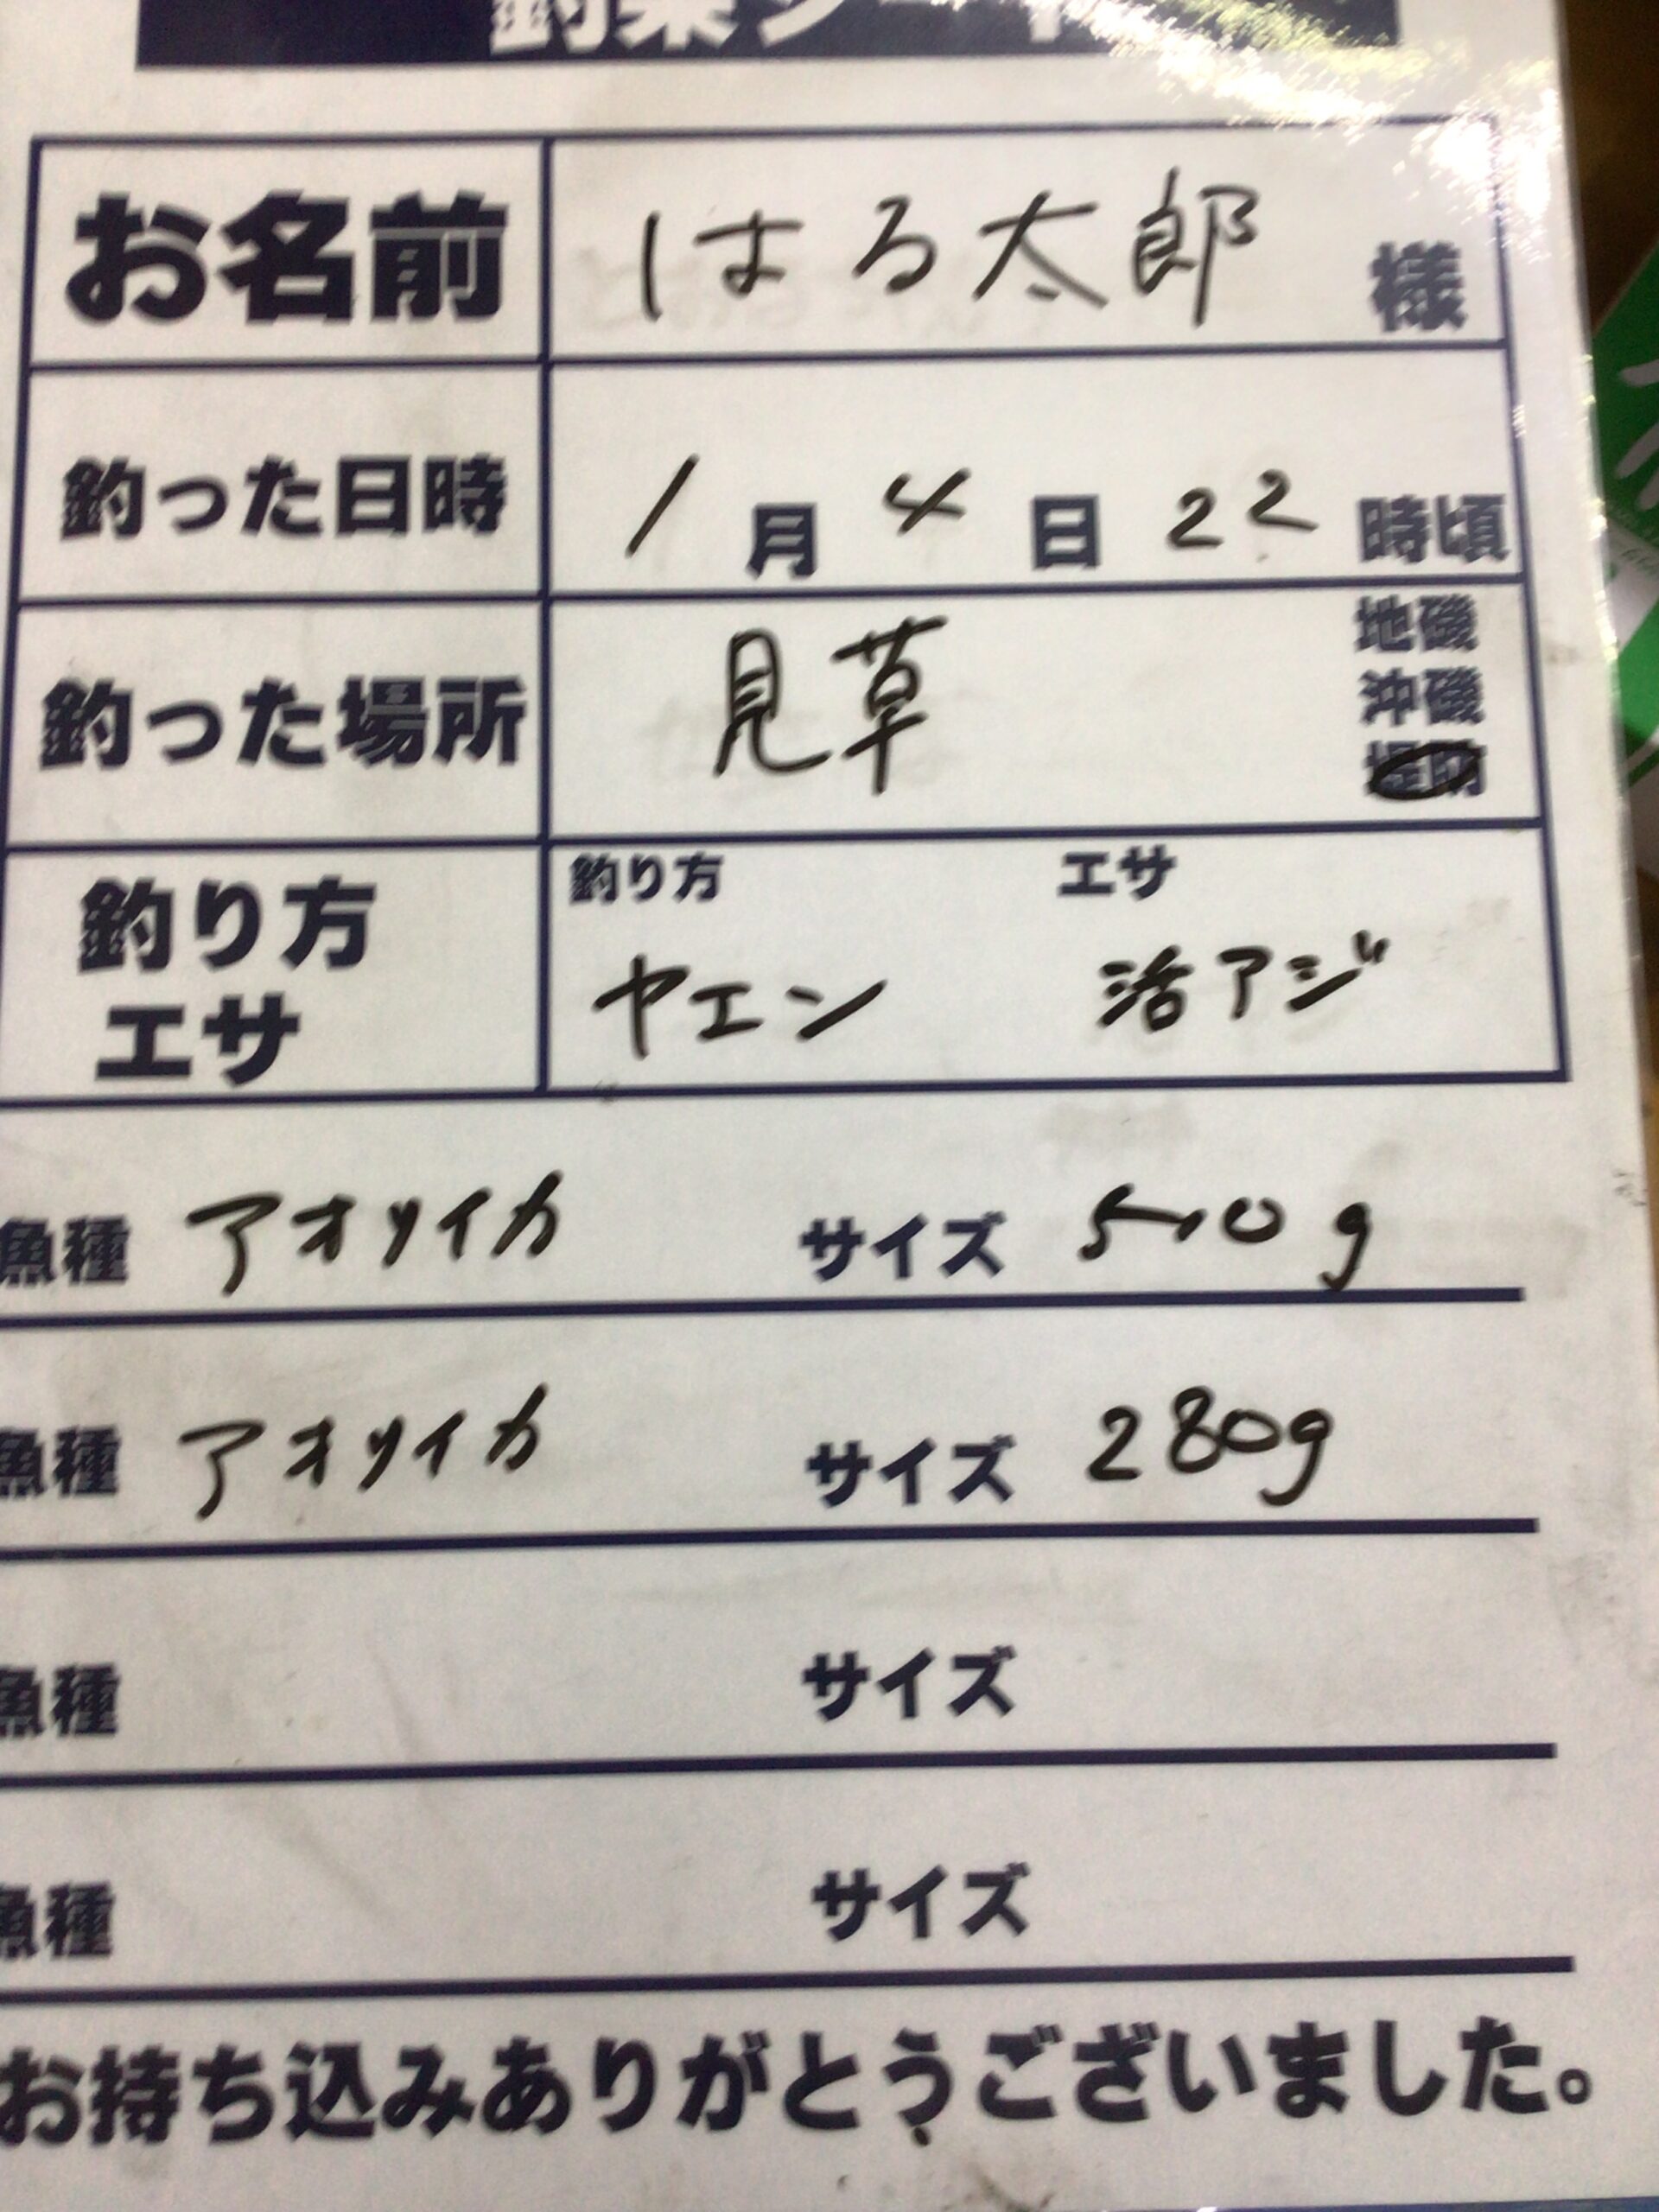 釣果シート
お名前 はる太郎 様
釣った日時 1月4日22時頃
釣った場所 見草 地磯
沖磯
堤防
釣り方 エサ
釣り方 ヤエン 活アジ
エサ
魚種 アオリイカ サイズ 510g
魚種 アオリイカ サイズ 280g
魚種 サイズ
魚種 サイズ
お持ち込みありがとうございました。